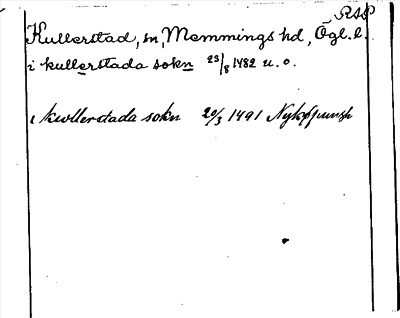 RAP
Kullerstad, sn, Memmings hd, Ögl. l.
i kullerstada sokn 23/8 1482 u. o.
i kwllerstada sokn 20/3 1491 Nyköpung